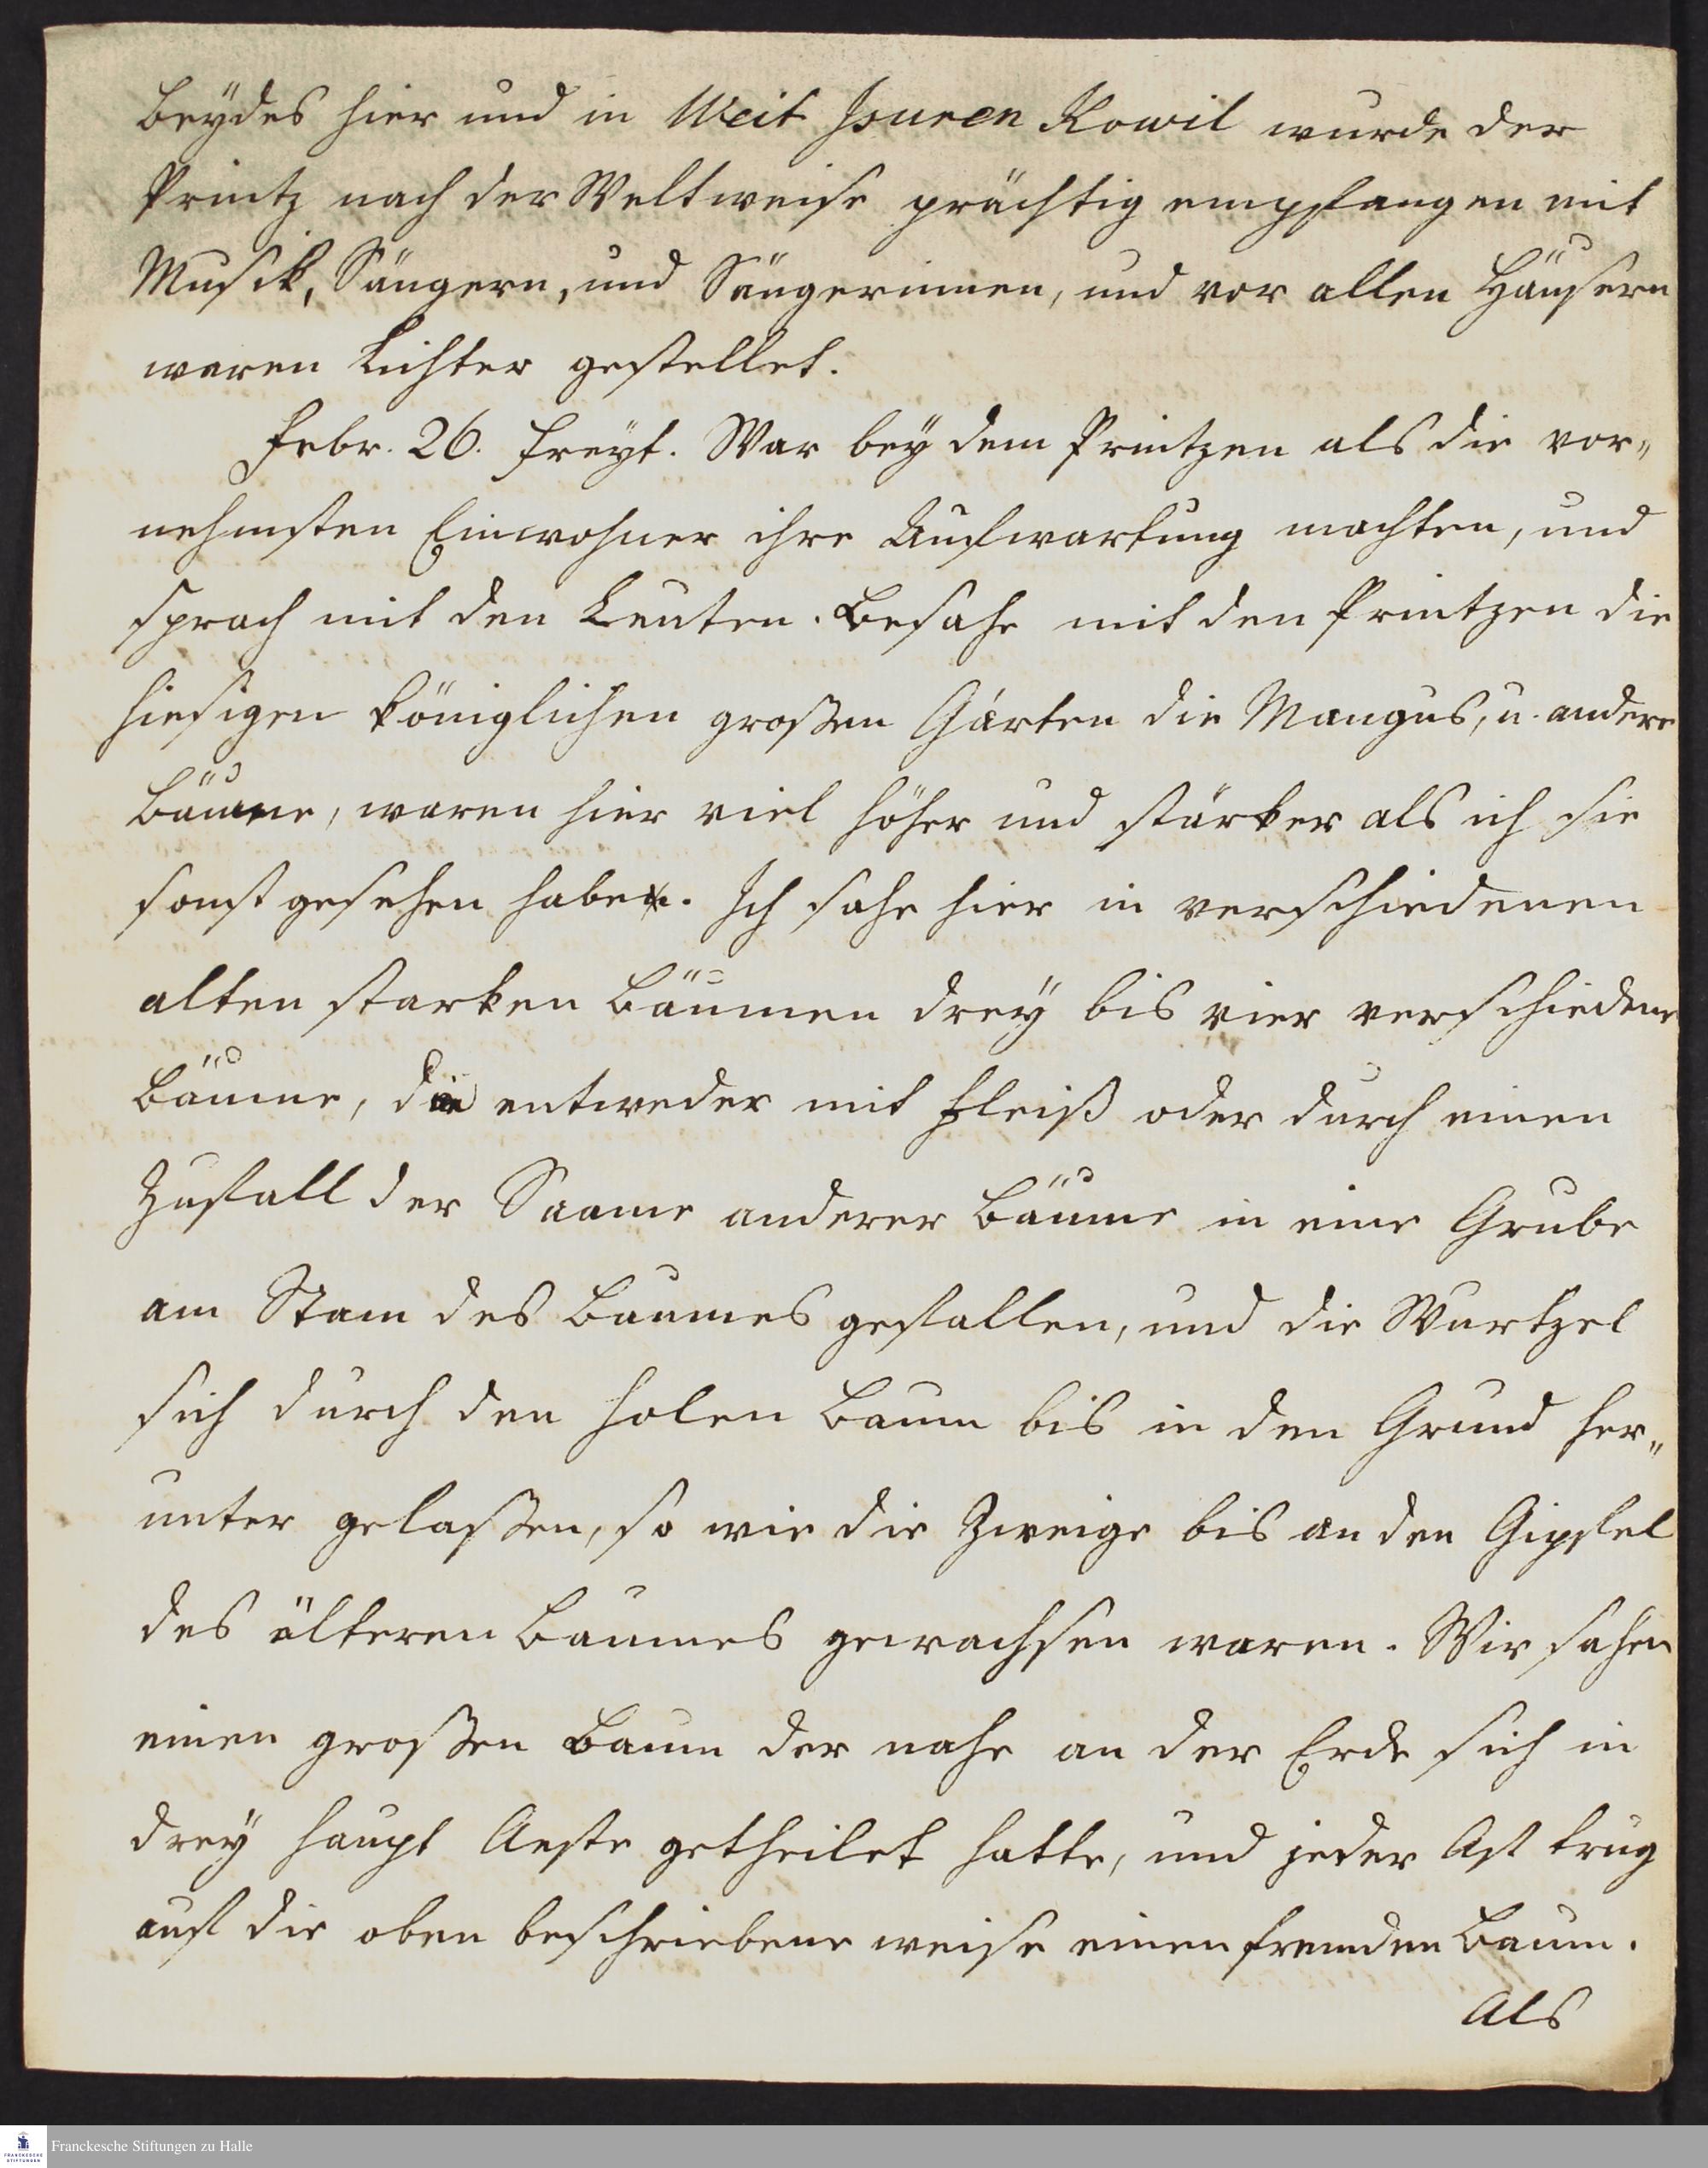 beydes hier und in Weit Isuren Kowil wurde der
Printz nach der Weltweise prächtig empfangen mit
Musik, Sängern, und Sängerinnen, und vor allen Häusern
waren Lichter gestellet.
Febr. 26. Freyt. War bey dem Printzen als die vor„
nehmsten Einwohner ihre Aufwartung machten, und
sprach mit den Leuten. Besahe mit den Printzen die
hiesigen königlichen großen Gärten die Mangus, u. andere
Bäume, waren hier viel höher und stärker als ich sie
sonst gesehen habe. Ich sahe hier in verschiedenen
alten starken Bäumen drey bis vier verschiedene
Bäume, die entweder mit Fleiß oder durch einen
Zufall der Saame anderer Bäume in eine Grube
am Stam des Baumes gefallen, und die Wurtzel
sich durch den holen Baum bis in den Grund her„
unter gelaßen, so wie die Zweige bis an den Gipfel
des älteren Baumes gewachsen waren. Wir sahen
einen großen Baum der nahe an der Erde sich in
drey haupt Aeste getheilet hatte, und jeder Ast trug
auf die oben beschriebene weise einen fremden Baum.
Als
Franckesche Stiftungen zu Halle
FRANCKESCHE
STIFTUNGEN